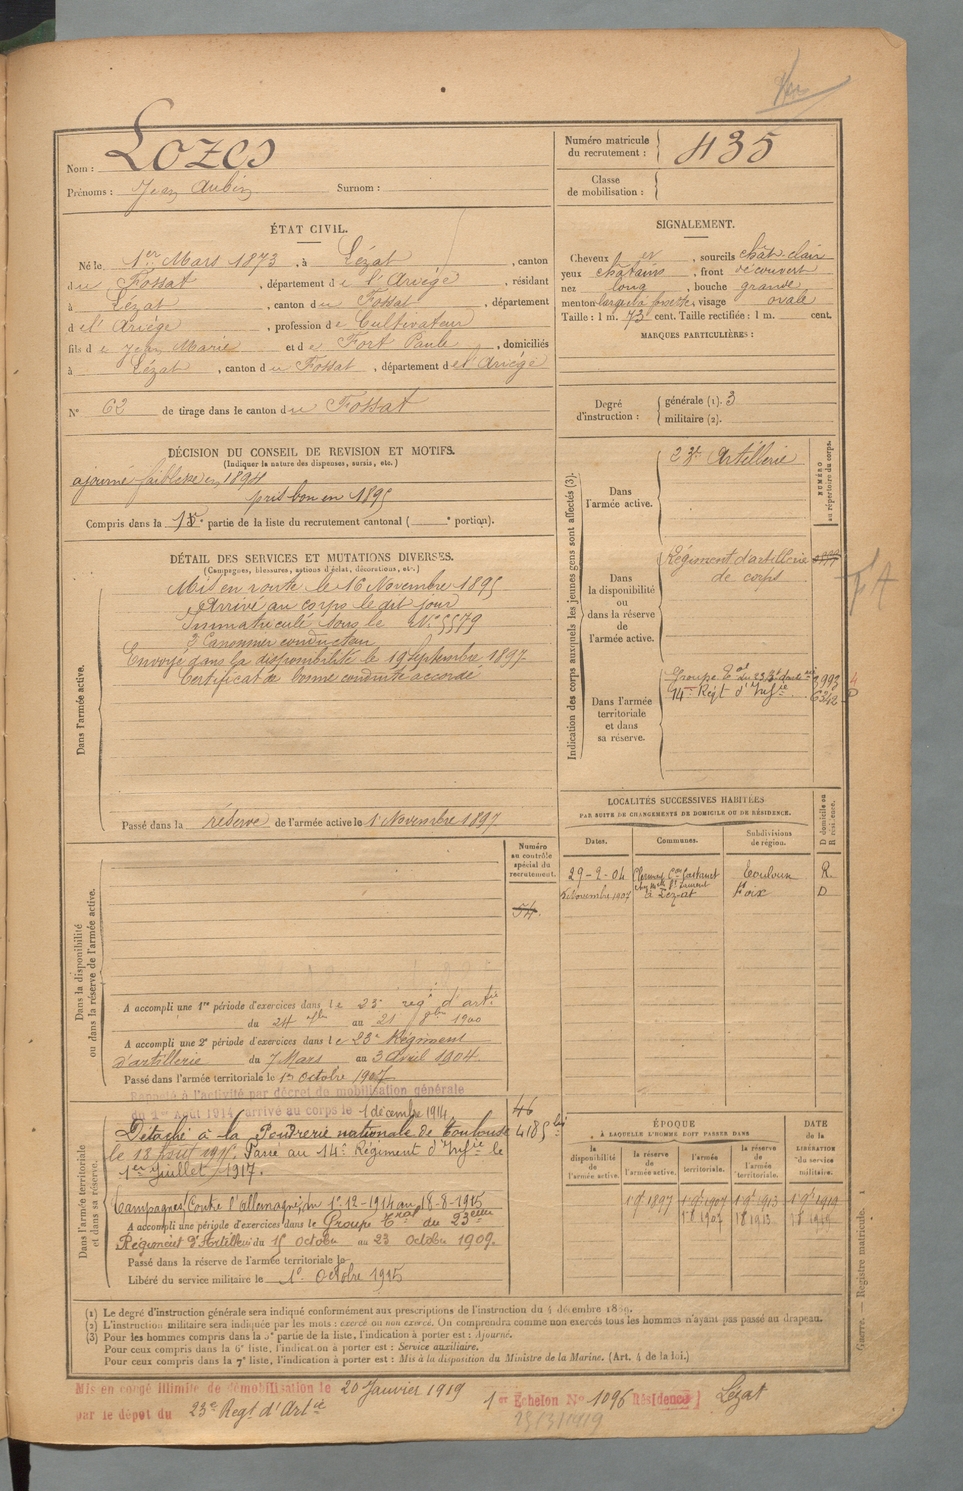 Nom : Lozes
Prénoms : Jean Aubin Surnom :
Numéro matricule du recrutement : 435
Classe de mobilisation :
ÉTAT CIVIL.
Né le 1er Mars 1873, à Lézat, canton
du Fossat, département de l'Ariège, résidant
à Lézat, canton du Fossat, département
de l'Ariège, profession de Cultivateur
fils de Jean Marie et de Fort Paule, domiciliés
à Lézat, canton du Fossat, département de l'Ariège
N° 62 de tirage dans le canton du Fossat
SIGNALEMENT.
Cheveux et, sourcils chât-clair
yeux chatains, front découvert
nez long, bouche grande
menton large à fossette, visage ovale
Taille : 1 m. 73 cent. Taille rectifiée : 1 m. cent.
MARQUES PARTICULIÈRES :
Degré d'instruction : générale (1). 3
militaire (2).
DÉCISION DU CONSEIL DE REVISION ET MOTIFS.
(Indiquer la nature des dispenses, sursis, etc.)
ajourné faiblesse en 1894
pris bon en 1895
Compris dans la 1e partie de la liste du recrutement cantonal ( e portion).
DÉTAIL DES SERVICES ET MUTATIONS DIVERSES.
(Campagnes, blessures, actions d'éclat, décorations, etc.)
Dans l'armée active.
Mis en route le 16 Novembre 1895
Arrivé au corps le dit jour
Immatriculé sous le N° 5579
2e Canonnier conducteur
Envoyé dans la disponibilité le 19 Septembre 1897
Certificat de bonne conduite accordé
Passé dans la réserve de l'armée active le 1 Novembre 1897
Indication des corps auxquels les jeunes gens sont affectés (3).
NUMÉRO au répertoire du corps.
Dans l'armée active.
23e Artillerie
Dans la disponibilité ou dans la réserve de l'armée active.
Régiment d'artillerie
de corps
Dans l'armée territoriale et dans sa réserve.
Groupe Tal du 23e Rt d'artie 2993
14e Régt d'Infie 6342
LOCALITÉS SUCCESSIVES HABITÉES
PAR SUITE DE CHANGEMENTS DE DOMICILE OU DE RÉSIDENCE.
Dates. Communes. Subdivisions de région. D domicile ou R résidence.
29-2-04 Toulouse R.
Novembre 1907 à Lézat Foix D
Numéro au contrôle spécial du recrutement.
54.
Dans la disponibilité ou dans la réserve de l'armée active.
A accompli une 1re période d'exercices dans le 23e régt d'artie
du 24 7bre au 21 8bre 1900
A accompli une 2e période d'exercices dans le 23e Régiment
d'artillerie du 7 Mars au 3 Avril 1904
Passé dans l'armée territoriale le 1er octobre 1907
Rappelé à l'activité par décret de mobilisation générale
du 1er Août 1914, arrivé au corps le 1 décembre 1914
46
4185 bis
Dans l'armée territoriale et dans sa réserve.
Détaché à la Poudrerie nationale de Toulouse
le 18 Août 1915. Passé au 14e Régiment d'Infie le
1er Juillet 1917.
Campagnes Contre l'allemagne du 1-12-1914 au 18-8-1915
A accompli une période d'exercices dans le Groupe Tal du 23ème
Régiment d'Artillerie du 15 octobre au 23 octobre 1909
Passé dans la réserve de l'armée territoriale le
Libéré du service militaire le 1er Octobre 1915
ÉPOQUE
A LAQUELLE L'HOMME DOIT PASSER DANS
DATE de la LIBÉRATION du service militaire.
la disponibilité de l'armée active. la réserve de l'armée active. l'armée territoriale. la réserve de l'armée territoriale.
1 9bre 1897 1 9bre 1907 1 9bre 1913 1 9bre 1919
1 8 1907 1 8 1913 1 8 1919
(1) Le degré d'instruction générale sera indiqué conformément aux prescriptions de l'instruction du 4 décembre 1889.
(2) L'instruction militaire sera indiquée par les mots : exercé ou non exercé. On comprendra comme non exercés tous les hommes n'ayant pas passé au drapeau.
(3) Pour les hommes compris dans la 5e partie de la liste, l'indication à porter est : Ajourné.
Pour ceux compris dans la 6e liste, l'indication à porter est : Service auxiliaire.
Pour ceux compris dans la 7e liste, l'indication à porter est : Mis à la disposition du Ministre de la Marine. (Art. 4 de la loi.)
Guerre. — Registre matricule. 1
Mis en congé illimité de démobilisation le 20 Janvier 1919 1er Echelon N° 1096 Résidence Lézat
par le dépôt du 23e Regt d'Artie 15/3/1919